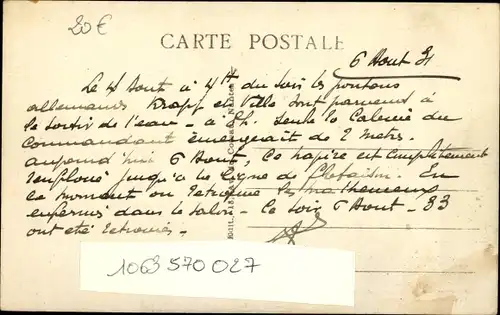 20€
CARTE POSTALE
6 Août 31
Le 4 Août à 4h du soir les pontons
allemands Krapf et Ville sont parvenus à
le sortir de l'eau - à 8h. seule la Calerie du
Commandant émergeait de 2 metrs.
aujourd'hui 6 Août, Ce navire est complètement
renfloué jusqu'à la ligne de flotaison. En
ce moment on retire les malheureux
enfermés dans le salon - Ce soir 6 Août - 33
ont été retrouvés -
1063 570 027